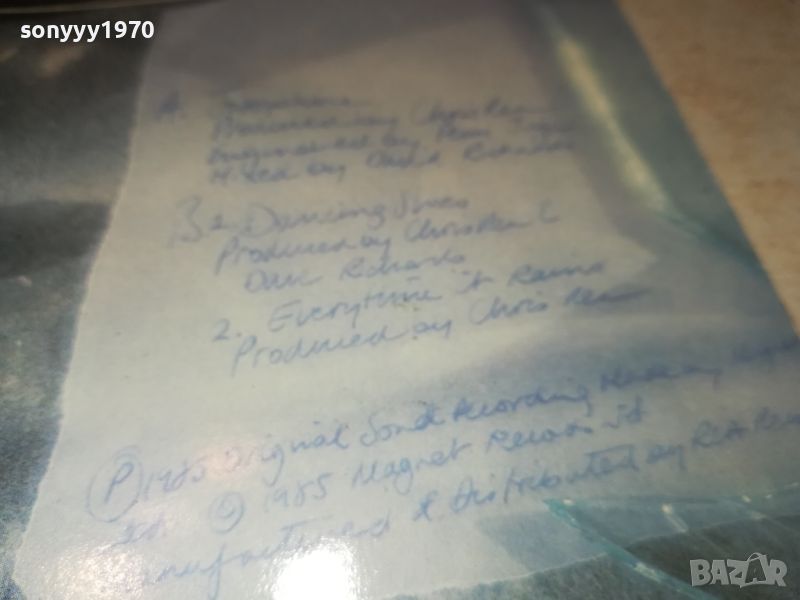 sonyyy1970
A.
Produced by Chris Rea
Engineered by
Mixed by David Richards
B 1. Dancing Shoes
Produced by Chris Rea &
Dave Richards
2. Everytime it Rains
Produced by Chris Rea
(P) 1985 Original Sound Recording Made by Magnet
© 1985 Magnet Records Ltd
Manufactured & Distributed by RCA
BAZAR